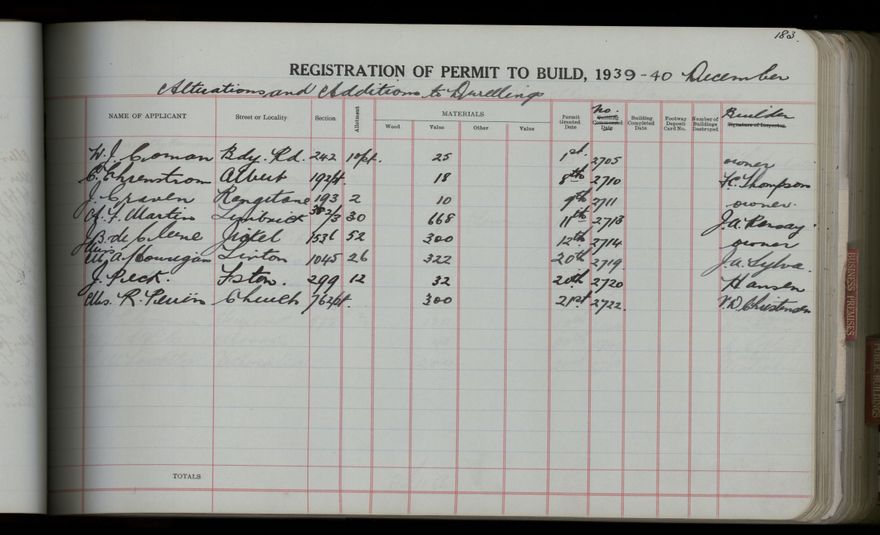 183.
REGISTRATION OF PERMIT TO BUILD, 1939-40 December
Alterations and Additions to Dwellings
NAME OF APPLICANT Street or Locality Section Allotment MATERIALS Permit Granted Date No. Building Commenced Date Building Completed Date Footway Deposit Card No. Number of Buildings Destroyed Builder Signature of Inspector
Wood Value Other Value
W. J. Coman Bdy. Rd. 242 10/pt. 25 1st. 2705 owner
C. Ehrenstrom Albert 192/pt. 18 8th 2710 F.C. Thompson
J. Craven Rangitane 193 2 10 9th 2711 owner
A. F. Martin 30 668 11th 2713 J.A.
B. de Cleene 1536 52 300 12th 2714 owner
Miss A. Hourigan Linton 1045 26 322 20th 2719. J.A. Sylva.
J. Peck. 299 12 32 20th 2720 Hansen
Mrs. R. Church 762/pt. 300 21st 2722. V.D. Christensen
TOTALS
BUSINESS PREMISES
PUBLIC BUILDINGS